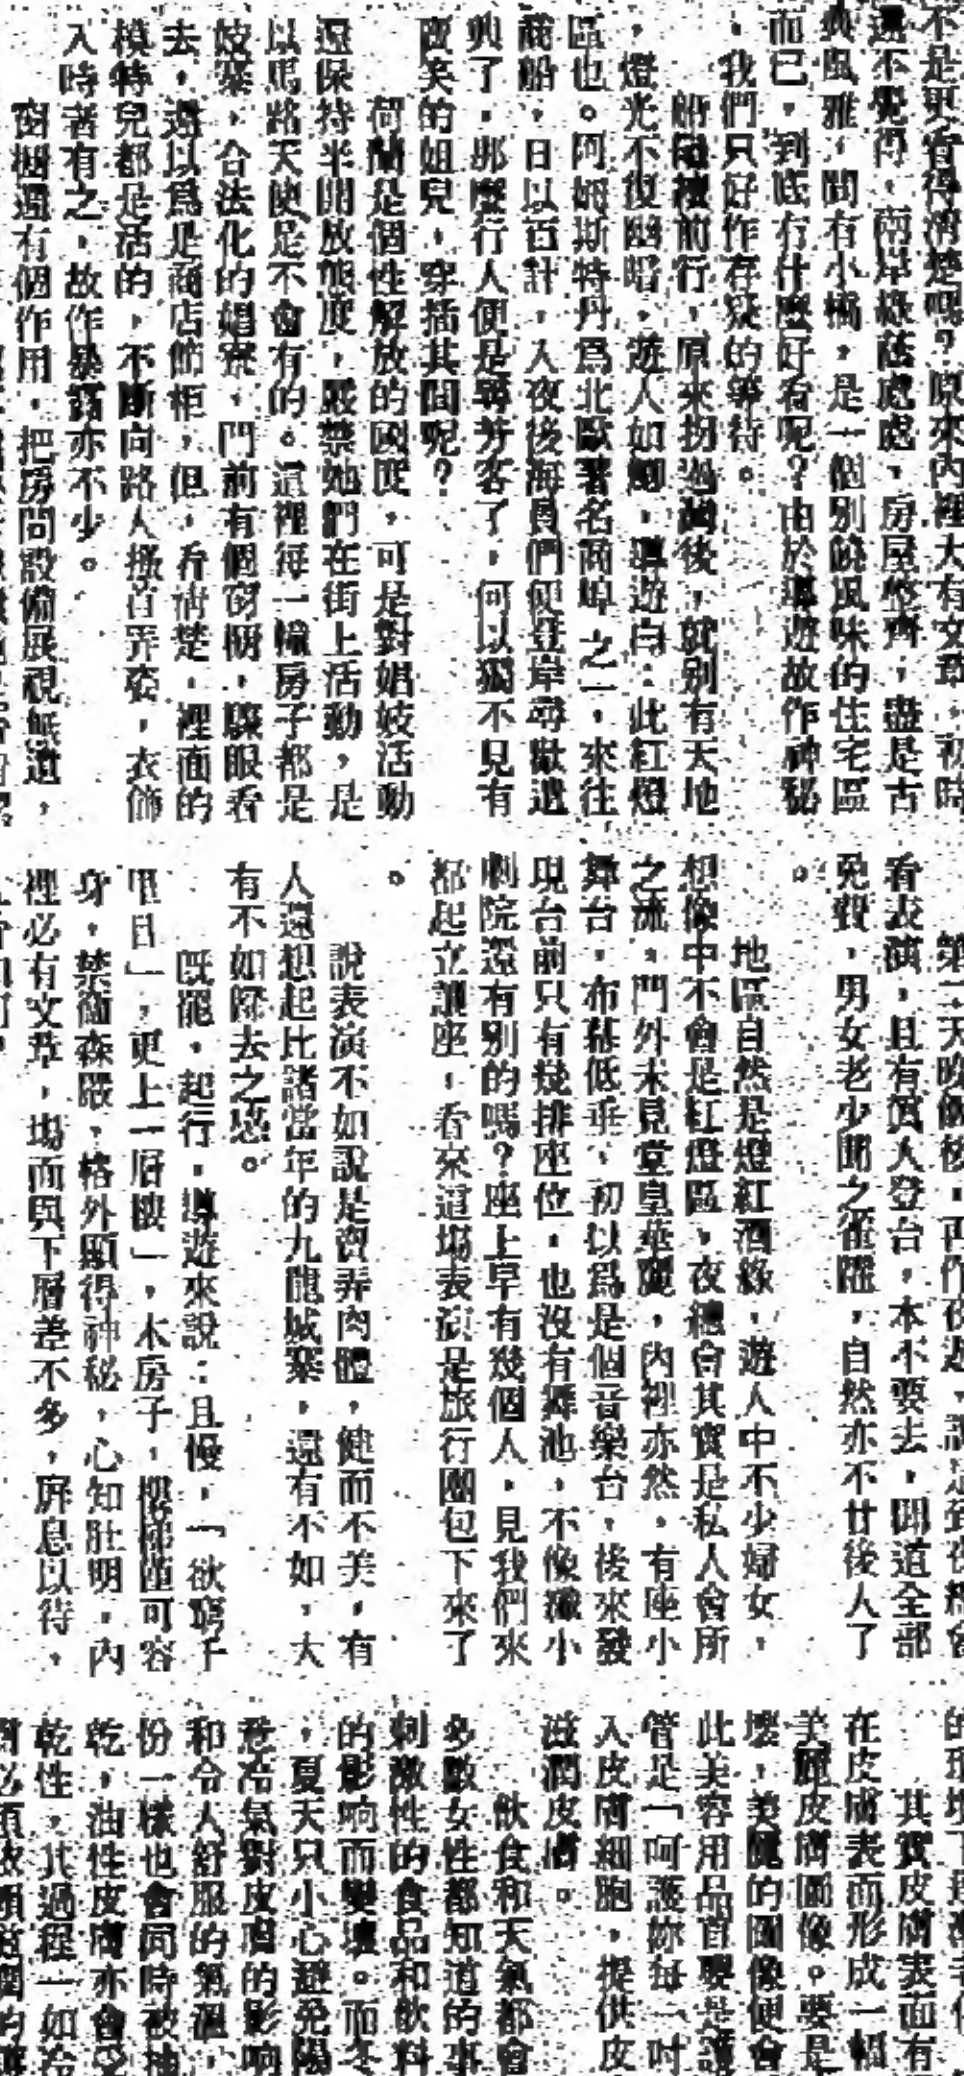 不是更看得清楚嗎？原來內裡大有文章，初時
還不覺得，兩岸綠蔭處處，房屋整齊，盡是古
與風雅，間有小橋，是一個別饒風味的住宅區
而已，到底有什麼好看呢？由於導遊故作神秘
，我們只好作存疑的等待。
船緩緩前行，原來拐過灣後，就別有天地
，燈光不復幽暗，遊人如鯽，導遊白：此紅燈
區也。阿姆斯特丹為北歐著名商埠之一，來往
商船，日以百計，入夜後海員們便登岸尋歡遣
興了，那麼行人便是尋芳客了，何以獨不見有
賣笑的姐兒，穿插其間呢？
荷蘭是個性解放的國度，可是對娼妓活動
還保持半開放態度，嚴禁她們在街上活動，是
以馬路天使是不會有的。這裡每一幢房子都是
妓寨，合法化的娼寮，門前有個窗櫥，驟眼看
去，還以為是商店飾柜，但，看清楚，裡面的
模特兒都是活的，不斷向路人搔首弄姿，衣飾
入時者有之，故作暴露亦不少。
窗櫥還有個作用，把房間設備展視無遺，
第二天晚飯後，再作夜遊，說是到夜總會
看表演，且有真人登台，本不要去，聞道全部
免費，男女老少聞之雀躍，自然亦不甘後人了
。
地區自然是燈紅酒綠，遊人中不少婦女，
想像中不會是紅燈區，夜總會其實是私人會所
之流，門外未見堂皇華麗，內裡亦然，有座小
舞台，布幕低垂，初以為是個音樂台，後來發
現台前只有幾排座位，也沒有舞池，不像纖小
劇院還有別的嗎？座上早有幾個人，見我們來
都起立讓座，看來這場表演是旅行團包下來了
。
說表演不如說是賣弄肉體，健而不美，有
人還想起比諸當年的九龍城寨，還有不如，大
有不如歸去之感。
既罷，起行，導遊來說：且慢，「欲窮千
里目」，更上一層樓」，木房子，樓梯僅可容
身，禁衛森嚴，格外顯得神秘，心知肚明，內
裡必有文章，場面與下層差不多，屏息以待，
其實皮膚表面有
在皮膚表面形成一幅
美麗皮膚圖像。要是
壞，美麗的圖像便會
此美容用品首要是護
管是「呵護妳每一吋
入皮膚細胞，提供皮
滋潤皮膚。
飲食和天氣都會
多數女性都知道的事
刺激性的食品和飲料
的影响而變壞。而冬
，夏天只小心避免陽
意冷氣對皮膚的影响
和令人舒服的氣溫，
份一樣也會同時被抽
乾，油性皮膚亦會受
乾性，其過程一如冷